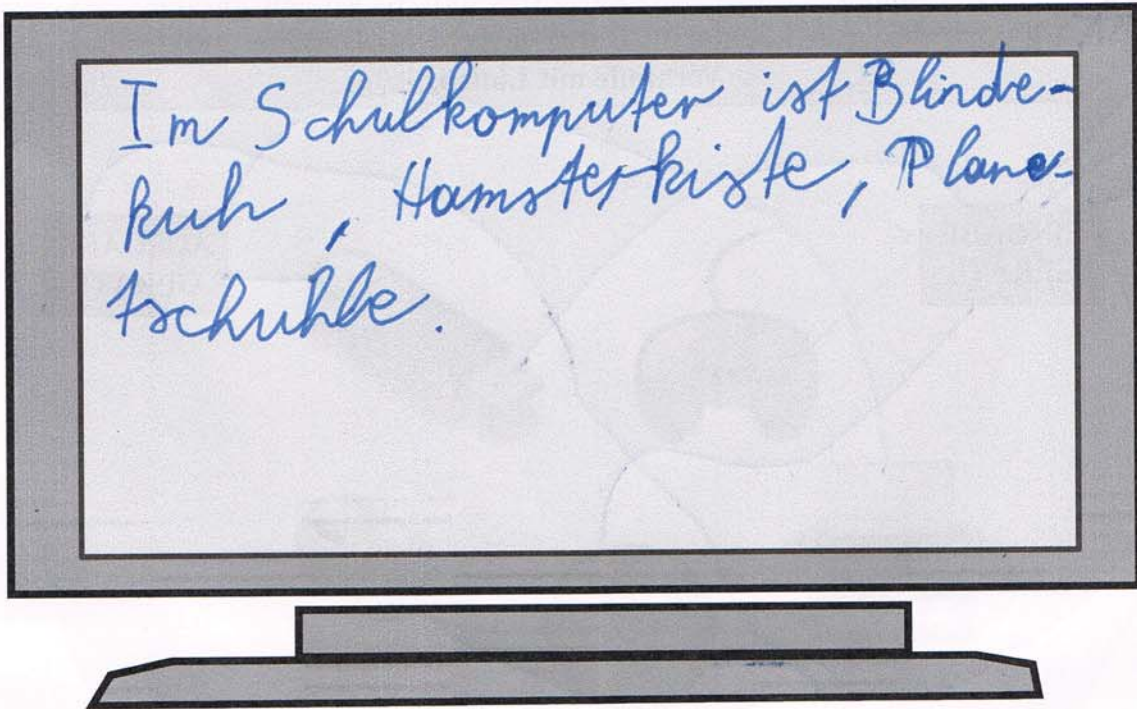 Im Schulkomputer ist Blinde-
kuh, Hamsterkiste, Plane-
tschuhle.